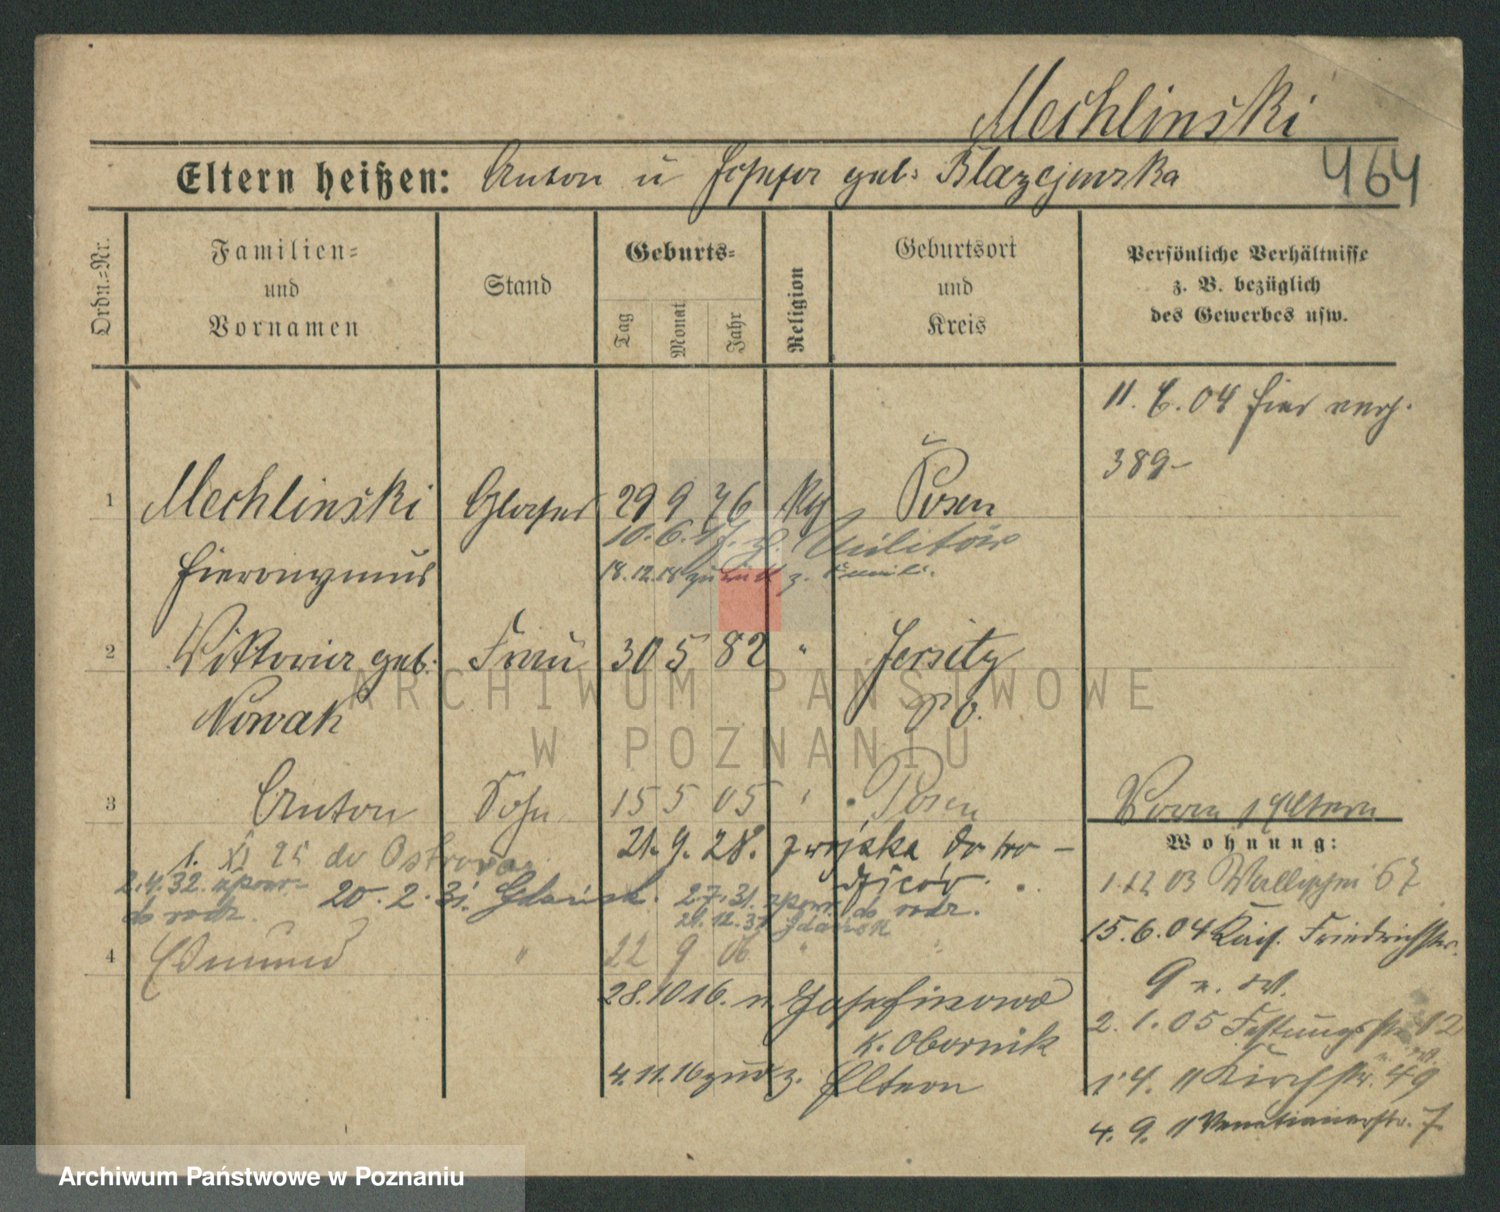 Mechlinski
Eltern heißen: Anton u Josefa geb: Blazejewska
464
Ordn.-Nr.
Familien-
und
Vornamen
Stand
Geburts-
Tag
Monat
Jahr
Religion
Geburtsort
und
Kreis
Persönliche Verhältnisse
z. B. bezüglich
des Gewerbes usw.
11. 6. 04 hier
389-
1 Mechlinski Glaser 29 9 76 Posen
10. 6. 17. z. Militär
Hieronymus 18. 12. 18 zurück z.
2 Viktoria geb. Frau 30 5 82 " Jersitz
Nowak
3 Anton Sohn 15 5 05 ' Posen
Wohnung:
21. 9. 28. z wojska do ro-
dziców.
1. XI 25 do Ostrowa
2. 4. 32. spowr.
do rodz. 20. 2. 31. Gdańsk. 2.7.31. spowr. do rodz.
21. 12. 31 Gdańsk
4 Edmund " 22 9 06 " "
28. 10 16. n. Josefinowo
K. Obornik
4. 11. 16 zur. z. Eltern
1. 12 03 Wallischei 67
15. 6. 04 Kais. Friedrichstr.
9
2. 1. 05 Festungsstr. 12
1. 4. 11 Kirchstr. 49
4. 9. 11 Venetianerstr. 7.
ARCHIWUM PAŃSTWOWE
W POZNANIU
Archiwum Państwowe w Poznaniu